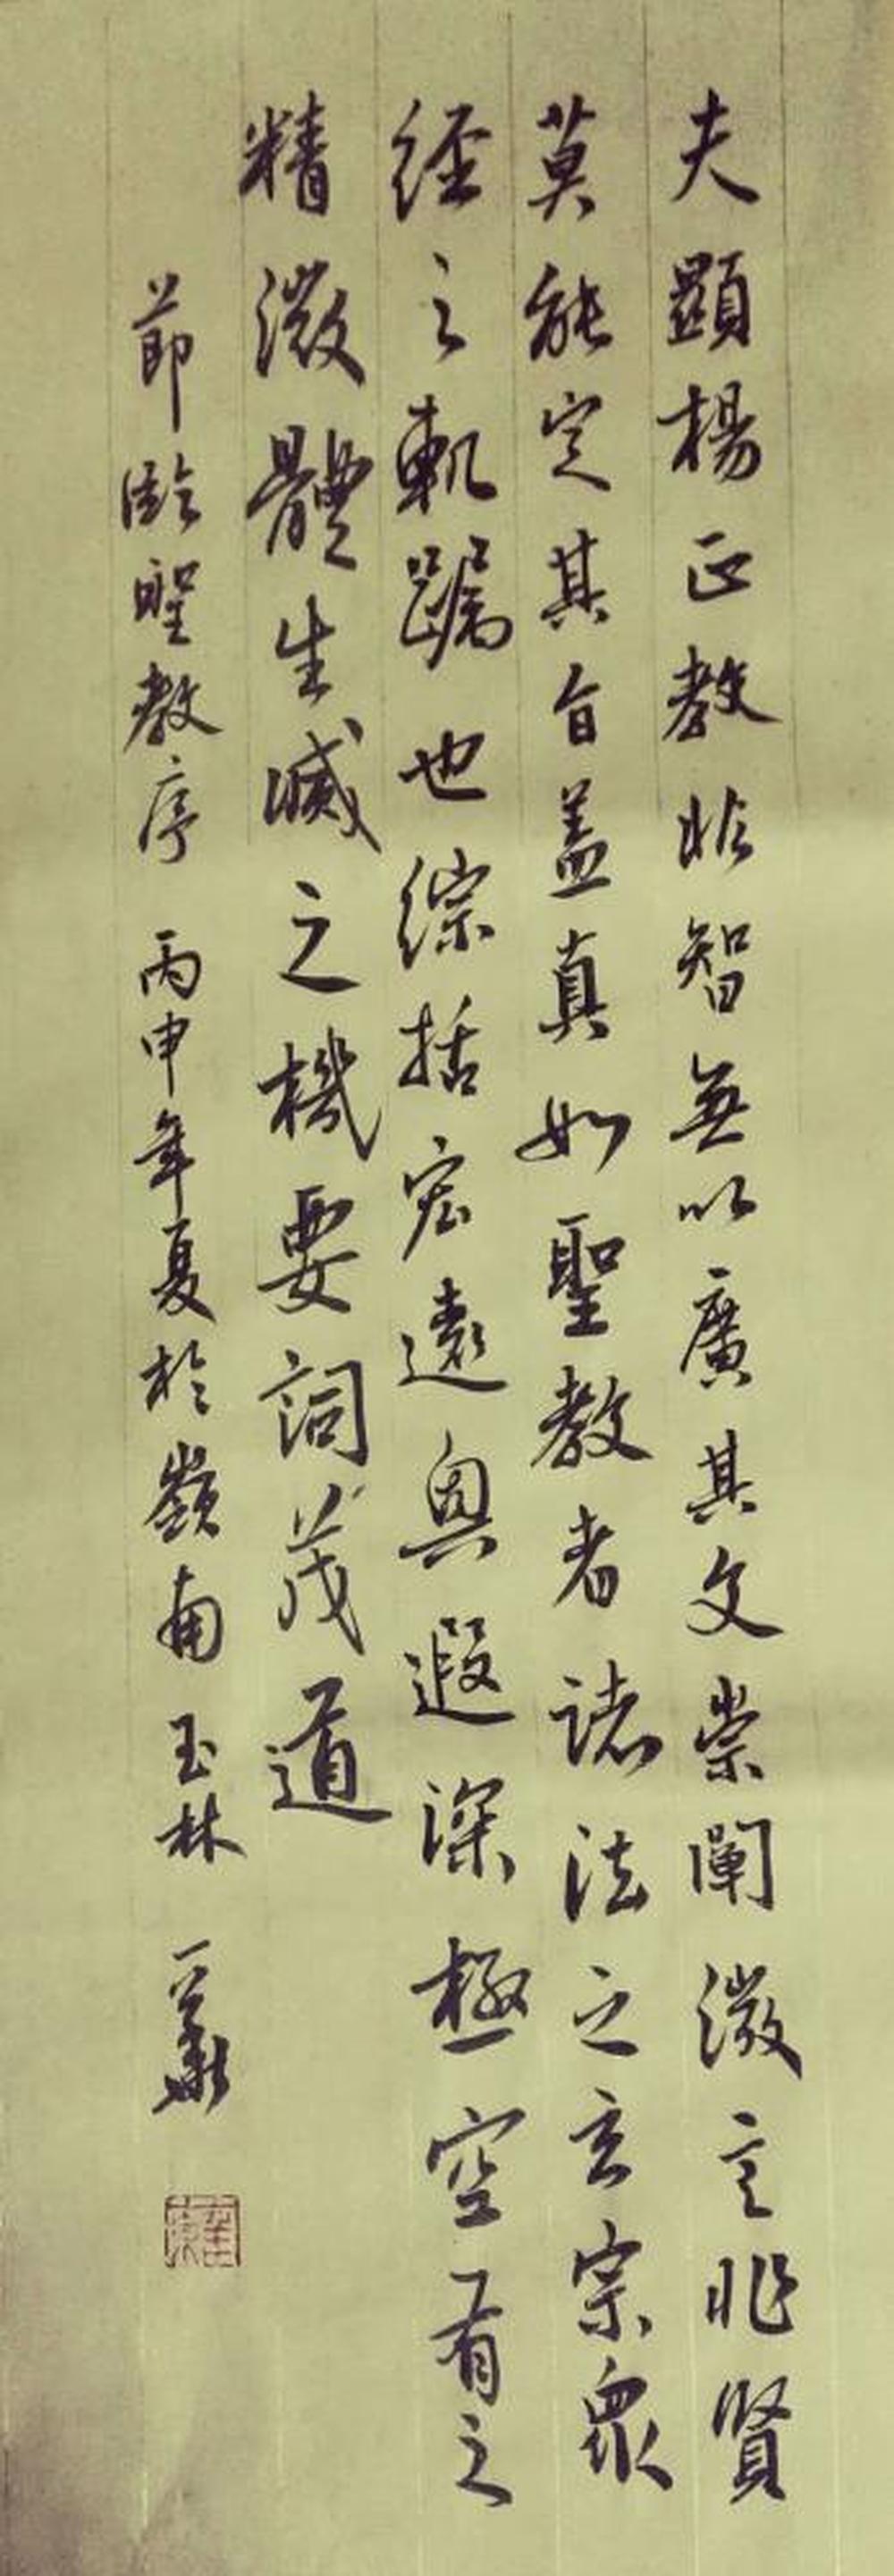 夫顯楊正教非智無以廣其文崇闡微言非賢
莫能定其旨蓋真如聖教者諸法之玄宗衆
經之軌躅也綜括宏遠奧遐深極空有之
精微體生滅之機要詞茂道
節臨聖教序 丙申年夏於嶺南玉林